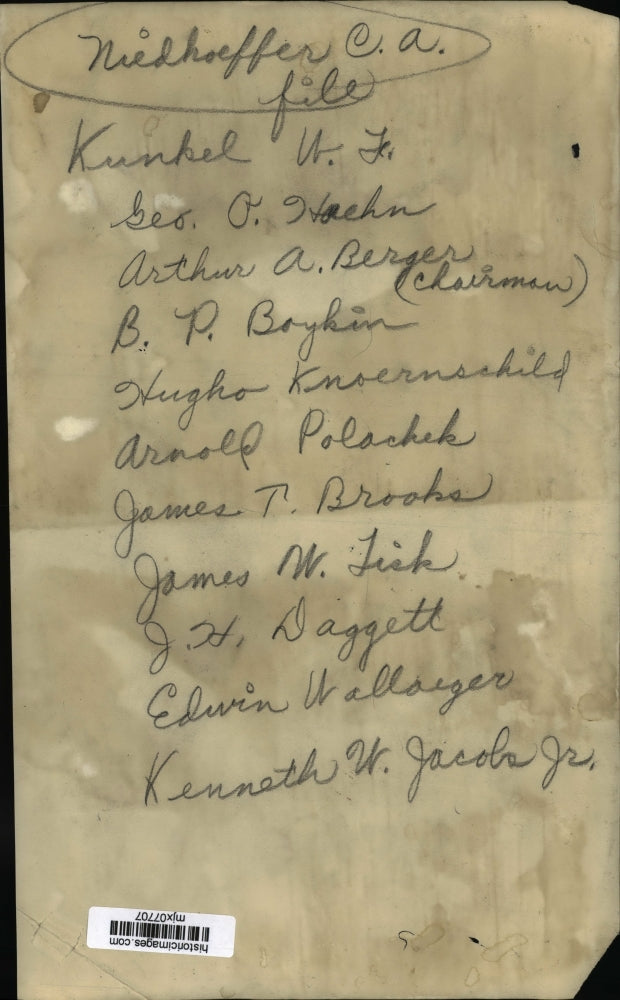 Niedhoeffer C. A.
file
Kunkel W. F.
Geo. O. Hoehn
Arthur A. Berger
(chairman)
B. P. Boykin
Hugho Knoernschild
Arnold Polachek
James T. Brooks
James W. Fisk
J. H. Daggett
Edwin Wallaeger
Kenneth W. Jacobs Jr.
historicimages.com
mjx07707